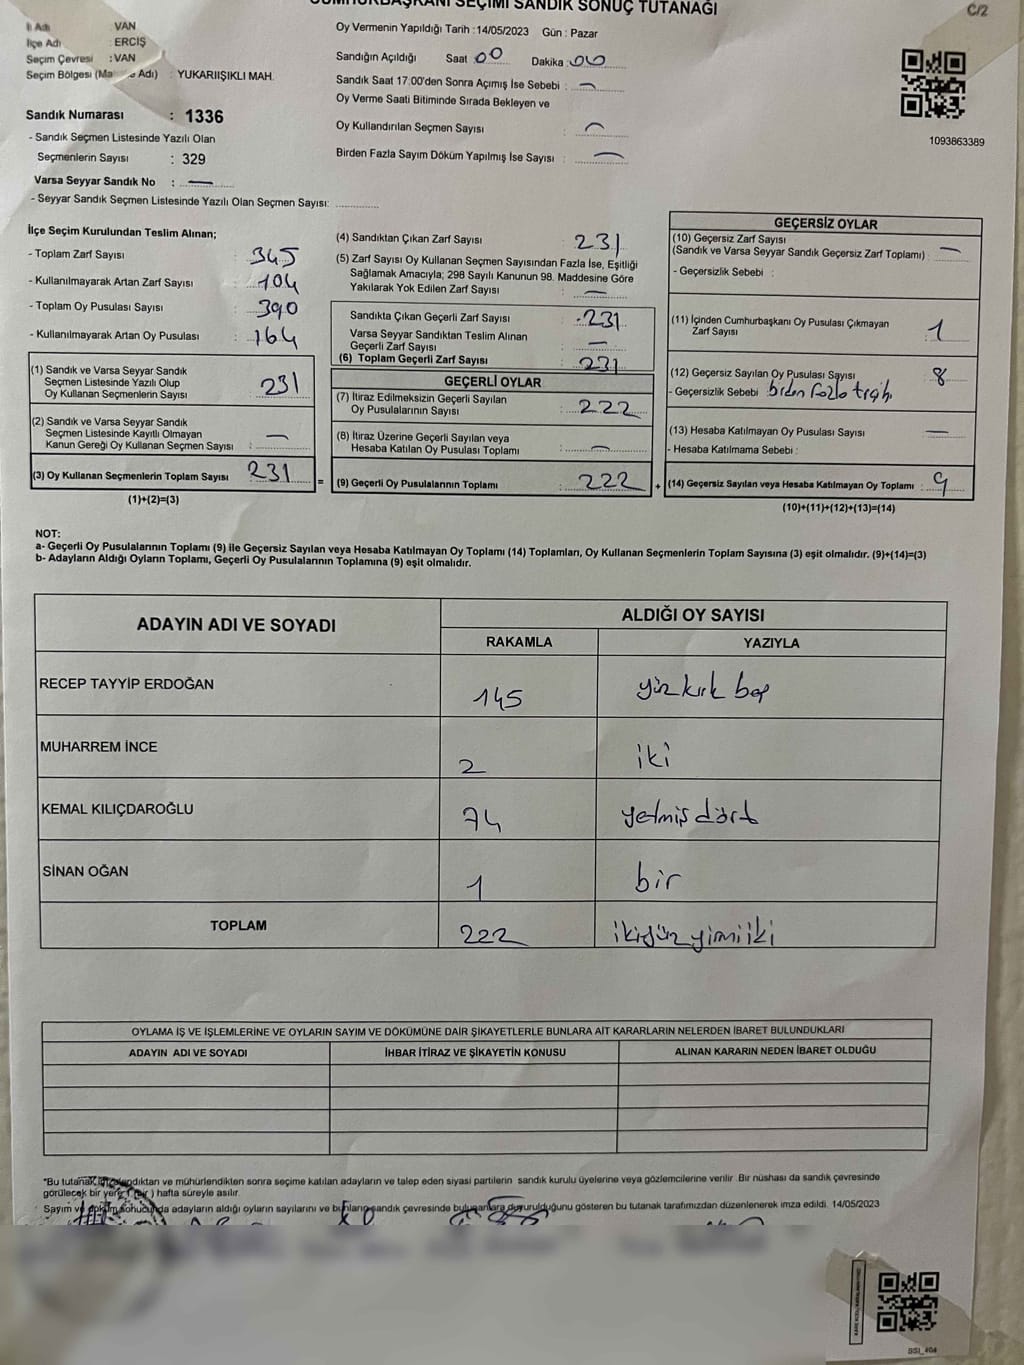 CUMHURBAŞKANI SEÇİMİ SANDIK SONUÇ TUTANAĞI
C/2
İl Adı VAN
İlçe Adı : ERCİŞ
Seçim Çevresi : VAN
Seçim Bölgesi (Ma Adı) : YUKARIIŞIKLI MAH.
Sandık Numarası : 1336
- Sandık Seçmen Listesinde Yazılı Olan
Seçmenlerin Sayısı : 329
Varsa Seyyar Sandık No : —
- Seyyar Sandık Seçmen Listesinde Yazılı Olan Seçmen Sayısı:
Oy Vermenin Yapıldığı Tarih :14/05/2023 Gün : Pazar
Sandığın Açıldığı Saat 00 Dakika 00
Sandık Saat 17:00'den Sonra Açımış İse Sebebi : —
Oy Verme Saati Bitiminde Sırada Bekleyen ve
Oy Kullandırılan Seçmen Sayısı : —
Birden Fazla Sayım Döküm Yapılmış İse Sayısı : —
1093863389
İlçe Seçim Kurulundan Teslim Alınan;
- Toplam Zarf Sayısı : 345
- Kullanılmayarak Artan Zarf Sayısı : 104
- Toplam Oy Pusulası Sayısı : 390
- Kullanılmayarak Artan Oy Pusulası : 164
(1) Sandık ve Varsa Seyyar Sandık
Seçmen Listesinde Yazılı Olup
Oy Kullanan Seçmenlerin Sayısı : 231
(2) Sandık ve Varsa Seyyar Sandık
Seçmen Listesinde Kayıtlı Olmayan
Kanun Gereği Oy Kullanan Seçmen Sayısı : —
(3) Oy Kullanan Seçmenlerin Toplam Sayısı : 231
(1)+(2)=(3)
=
(4) Sandıktan Çıkan Zarf Sayısı : 231
(5) Zarf Sayısı Oy Kullanan Seçmen Sayısından Fazla İse, Eşitliği
Sağlamak Amacıyla; 298 Sayılı Kanunun 98. Maddesine Göre
Yakılarak Yok Edilen Zarf Sayısı : —
Sandıkta Çıkan Geçerli Zarf Sayısı : 231
Varsa Seyyar Sandıktan Teslim Alınan
Geçerli Zarf Sayısı : —
(6) Toplam Geçerli Zarf Sayısı : 231
GEÇERLİ OYLAR
(7) İtiraz Edilmeksizin Geçerli Sayılan
Oy Pusulalarının Sayısı : 222
(8) İtiraz Üzerine Geçerli Sayılan veya
Hesaba Katılan Oy Pusulası Toplamı : —
(9) Geçerli Oy Pusulalarının Toplamı : 222
+
GEÇERSİZ OYLAR
(10) Geçersiz Zarf Sayısı
(Sandık ve Varsa Seyyar Sandık Geçersiz Zarf Toplamı) : —
- Geçersizlik Sebebi :
(11) İçinden Cumhurbaşkanı Oy Pusulası Çıkmayan
Zarf Sayısı : 1
(12) Geçersiz Sayılan Oy Pusulası Sayısı : 8
- Geçersizlik Sebebi : birden fazla tercih
(13) Hesaba Katılmayan Oy Pusulası Sayısı : —
- Hesaba Katılmama Sebebi :
(14) Geçersiz Sayılan veya Hesaba Katılmayan Oy Toplamı : 9
(10)+(11)+(12)+(13)=(14)
NOT:
a- Geçerli Oy Pusulalarının Toplamı (9) ile Geçersiz Sayılan veya Hesaba Katılmayan Oy Toplamı (14) Toplamları, Oy Kullanan Seçmenlerin Toplam Sayısına (3) eşit olmalıdır. (9)+(14)=(3)
b- Adayların Aldığı Oyların Toplamı, Geçerli Oy Pusulalarının Toplamına (9) eşit olmalıdır.
ADAYIN ADI VE SOYADI
ALDIĞI OY SAYISI
RAKAMLA YAZIYLA
RECEP TAYYİP ERDOĞAN 145 yüz kırk beş
MUHARREM İNCE 2 iki
KEMAL KILIÇDAROĞLU 74 yetmiş dört
SİNAN OĞAN 1 bir
TOPLAM 222 ikiyüz yirmi iki
OYLAMA İŞ VE İŞLEMLERİNE VE OYLARIN SAYIM VE DÖKÜMÜNE DAİR ŞİKAYETLERLE BUNLARA AİT KARARLARIN NELERDEN İBARET BULUNDUKLARI
ADAYIN ADI VE SOYADI İHBAR İTİRAZ VE ŞİKAYETİN KONUSU ALINAN KARARIN NEDEN İBARET OLDUĞU
*Bu tutanak, ve mühürlendikten sonra seçime katılan adayların ve talep eden siyasi partilerin sandık kurulu üyelerine veya gözlemcilerine verilir. Bir nüshası da sandık çevresinde
görülecek bir yere ( bir ) hafta süreyle asılır.
Sayım ve döküm sonucunda adayların aldığı oyların sayılarını ve bunların sandık çevresinde bulunanlara duyurulduğunu gösteren bu tutanak tarafımızdan düzenlenerek imza edildi. 14/05/2023
BSI_404